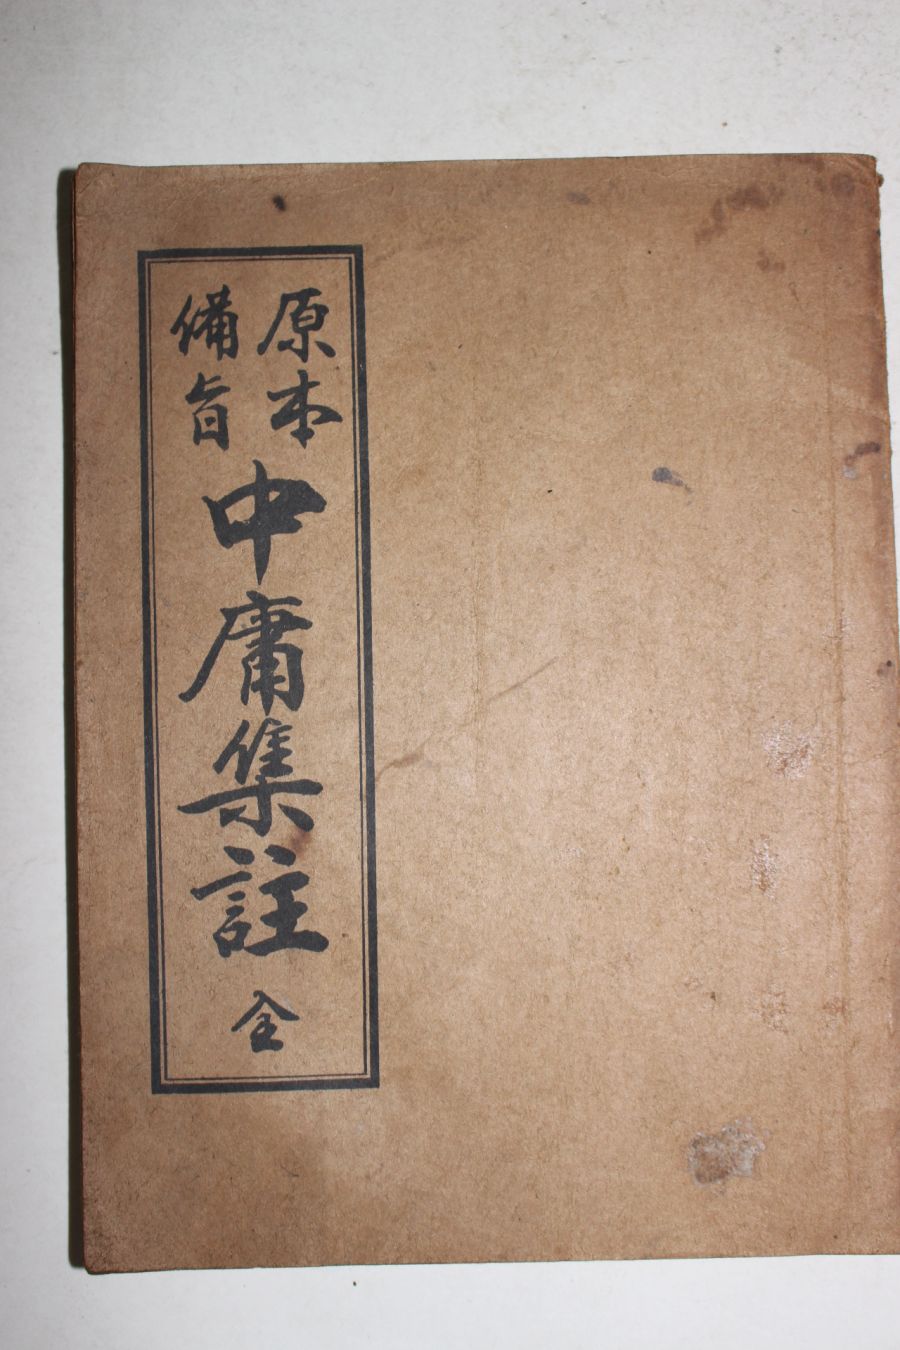 原本
備旨
中庸集註 全